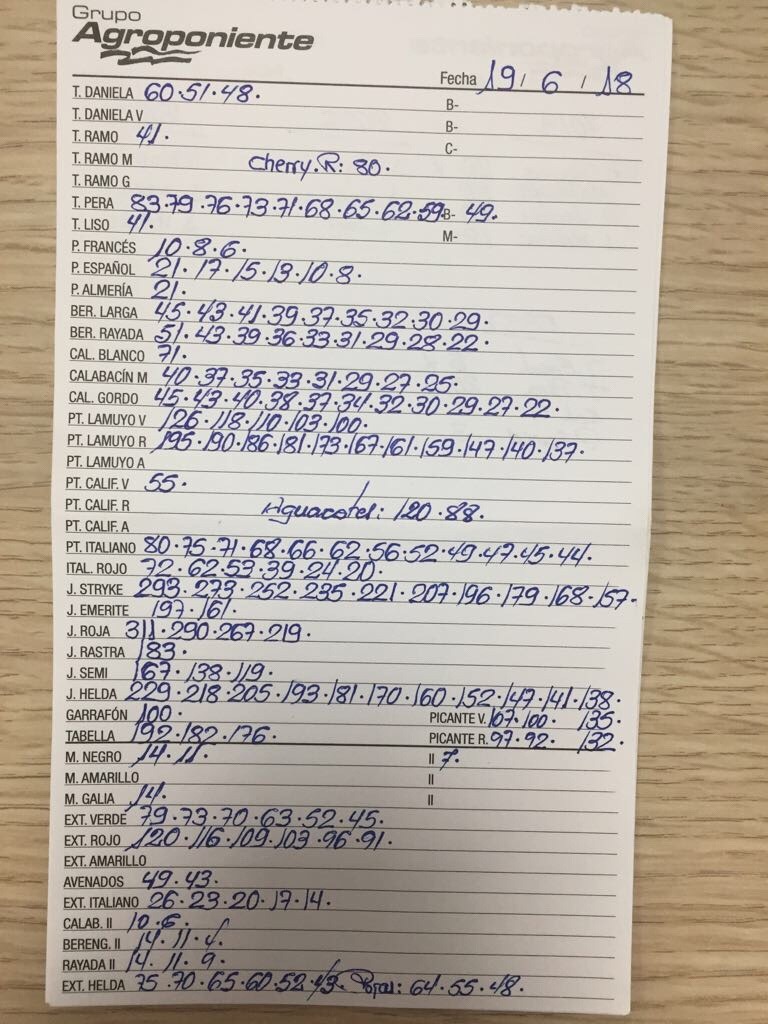 Grupo
Agroponiente
Fecha 19 / 6 / 18
T. DANELA 60·51·48· B-
T. DANIELA V B-
T. RAMO 41· C-
T. RAMO M Cherry.R: 80·
T. RAMO G
T. PERA 83·79·76·73·71·68·65·62·59· B- 49·
T. LISO 41· M-
P. FRANCÉS 10·8·6·
P. ESPAÑOL 21·17·15·13·10·8·
P. ALMERÍA 21·
BER. LARGA 45·43·41·39·37·35·32·30·29·
BER. RAYADA 51·43·39·36·33·31·29·28·22·
CAL. BLANCO 71·
CALABACÍN M 40·37·35·33·31·29·27·25·
CAL. GORDO 45·43·40·38·37·34·32·30·29·27·22·
PT. LAMUYO V 126·118·110·103·100·
PT. LAMUYO R 195·190·186·181·173·167·161·159·147·140·137·
PT. LAMUYO A
PT. CALIF. V 55·
PT. CALIF. R 120·88·
PT. CALIF. A
PT. ITALIANO 80·75·71·68·66·62·56·52·49·47·45·44·
ITAL. ROJO 72·62·53·39·24·20·
J. STRYKE 293·273·252·235·221·207·196·179·168·157·
J. EMERITE 197·161·
J. ROJA 311·290·267·219·
J. RASTRA 183·
J. SEMI 167·138·119·
J. HELDA 229·218·205·193·181·170·160·152·147·141·138·
GARRAFÓN 100· PICANTE V. 107·100· 135·
TABELLA 192·182·176· PICANTE R. 97·92· 132·
M. NEGRO 14·11· II 7·
M. AMARILLO II
M. GALIA 14· II
EXT. VERDE 79·73·70·63·52·45·
EXT. ROJO 120·116·109·103·96·91·
EXT. AMARILLO
AVENADOS 49·43·
EXT. ITALIANO 26·23·20·17·14·
CALAB. II 10·6·
BERENG. II 14·11·
RAYADA II 14·11·9·
EXT. HELDA 75·70·65·60·52·43· 64·55·48·